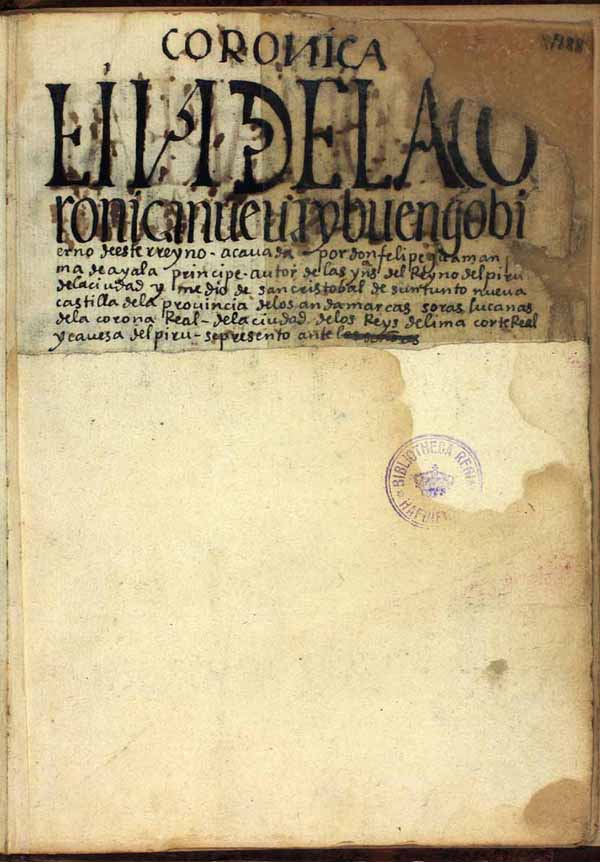 CORONICA
1188
FIN DE LA CO
ronica nueva y buen gobi
erno deeste rreyno - acavada - por don felipe guaman
ma de ayala prinsipe - autor de las yns del Reyno del piru
dela ciudad y medio de san cristobal de suntunto nueva
castilla de la provincia delos andamarcas soras lucanas
dela corona Real - dela ciudad delos Reys de lima corte Real
y cavesa del piru - sepresento ante los
BIBLIOTHECA REGIA